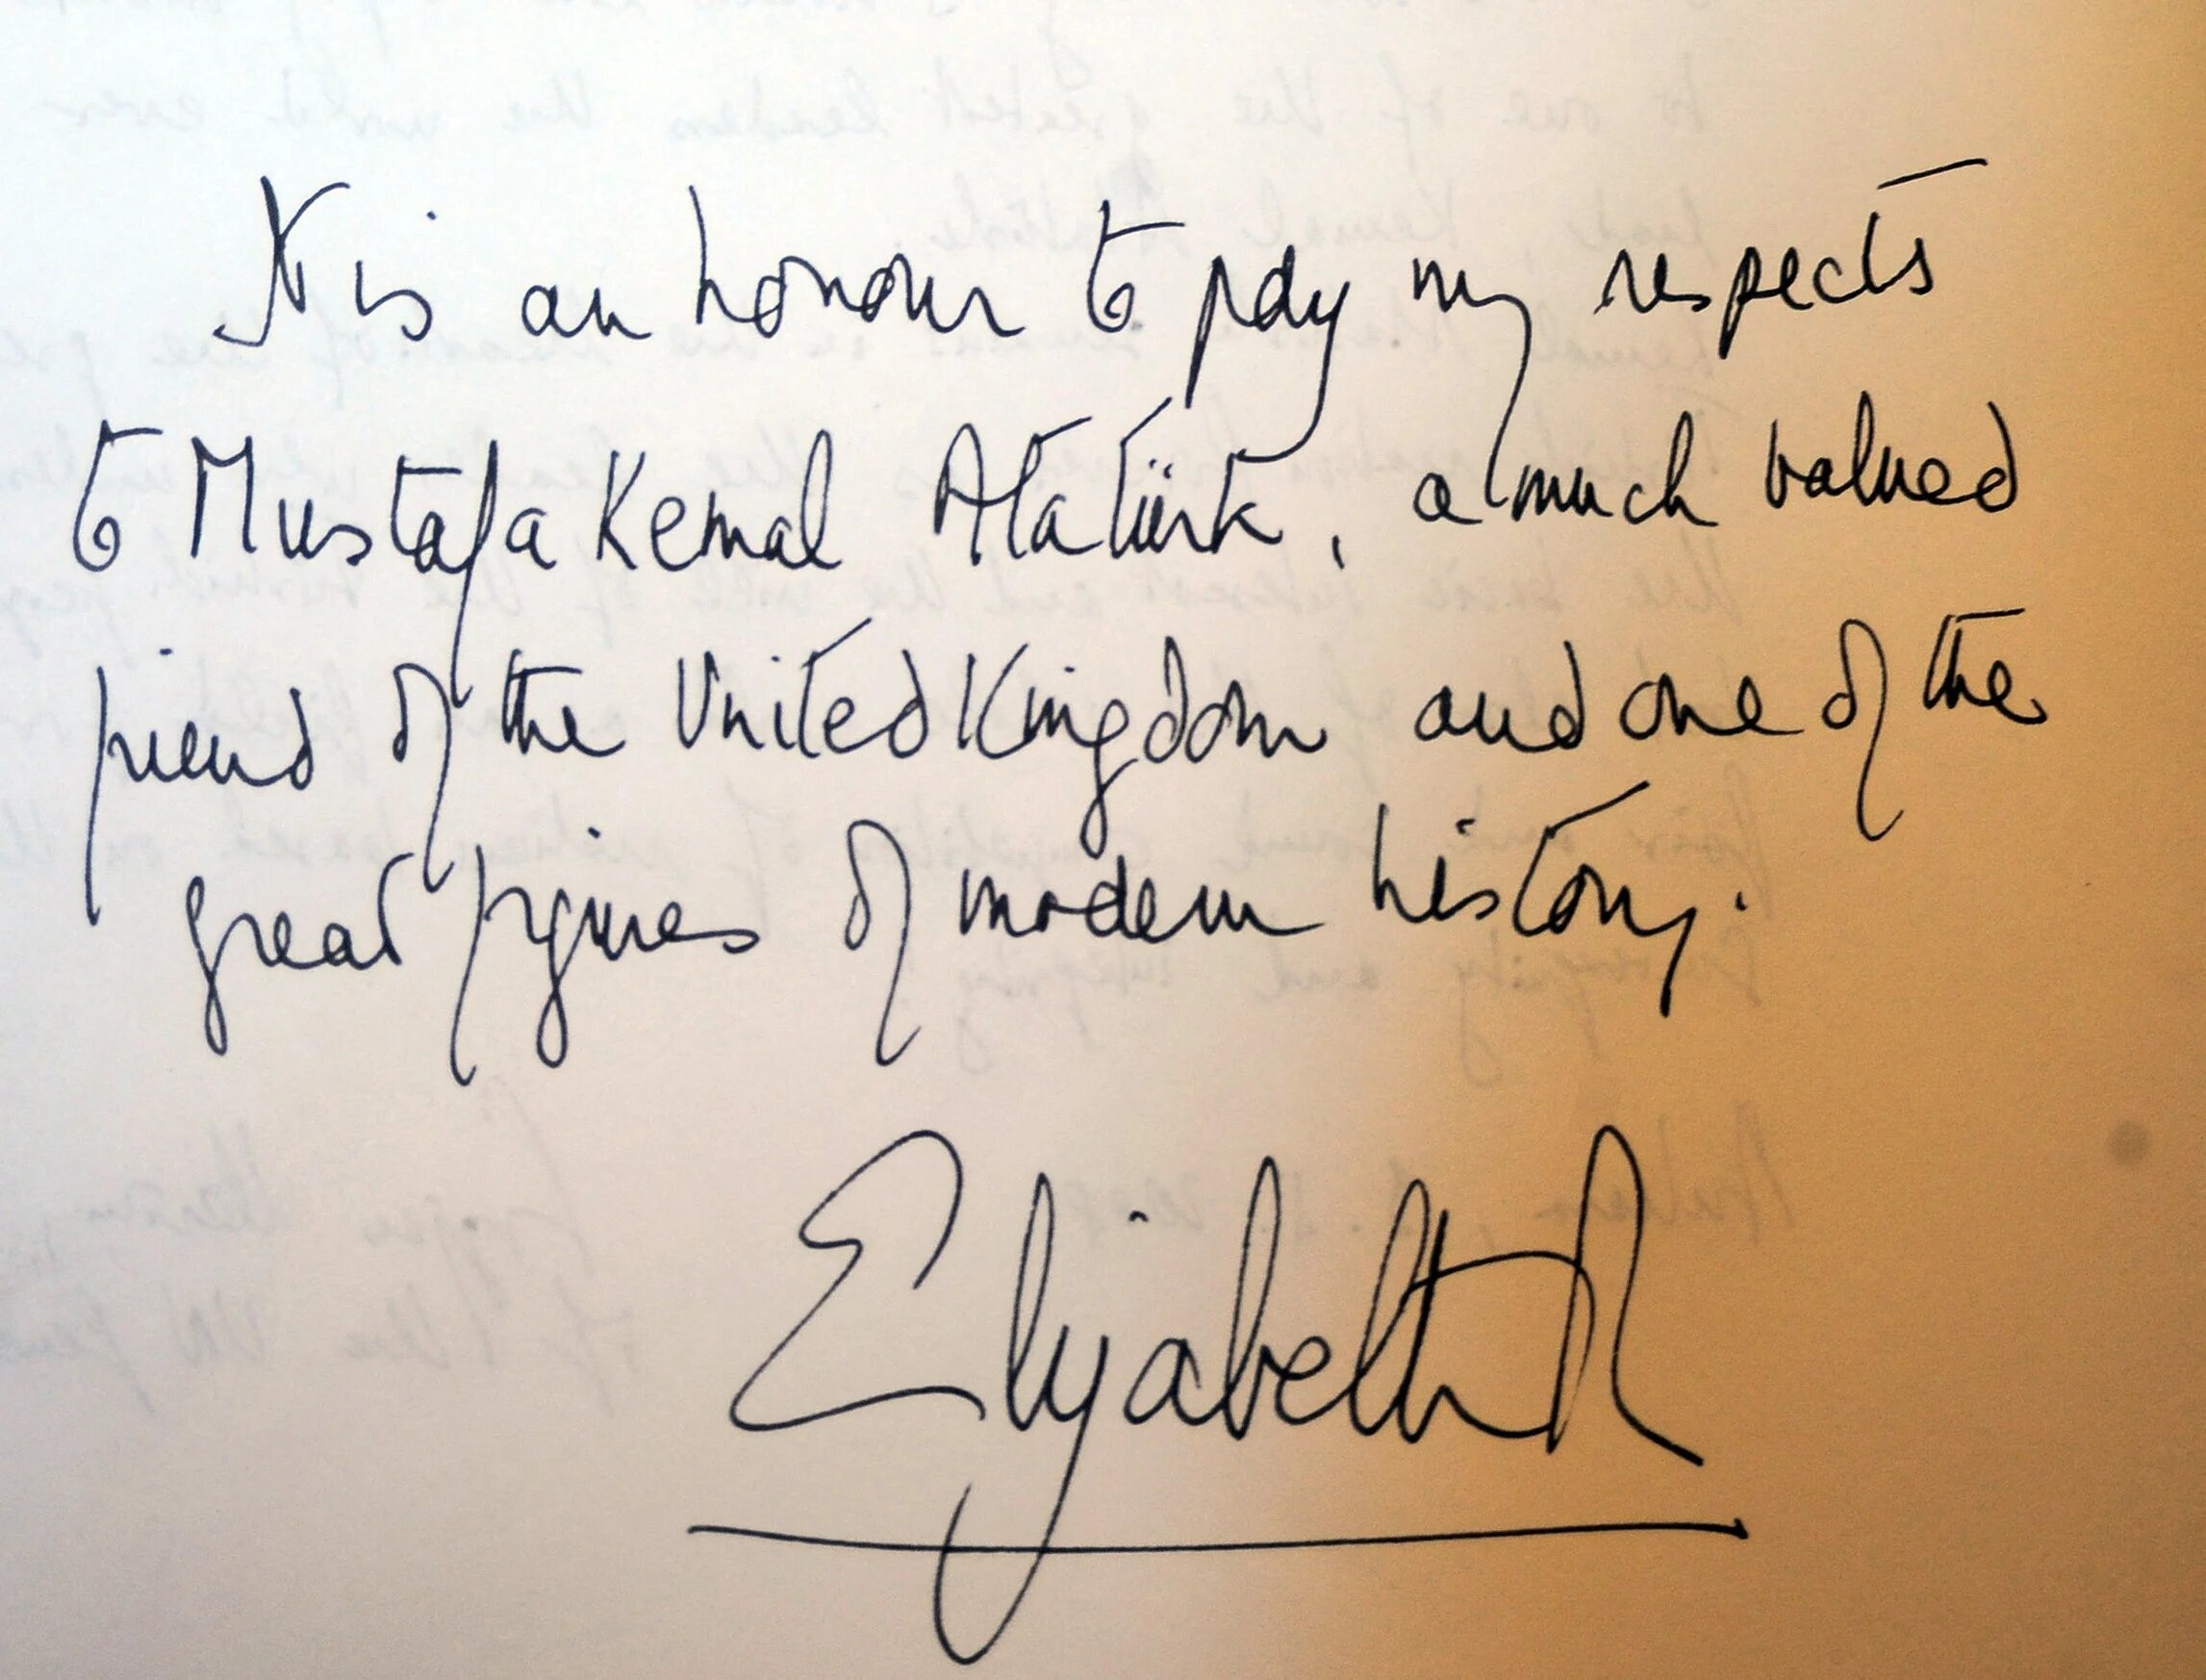 It is an honour to pay my respects
to Mustafa Kemal Atatürk, a much valued
friend of the United Kingdom and one of the
great figures of modern history.
Elizabeth R